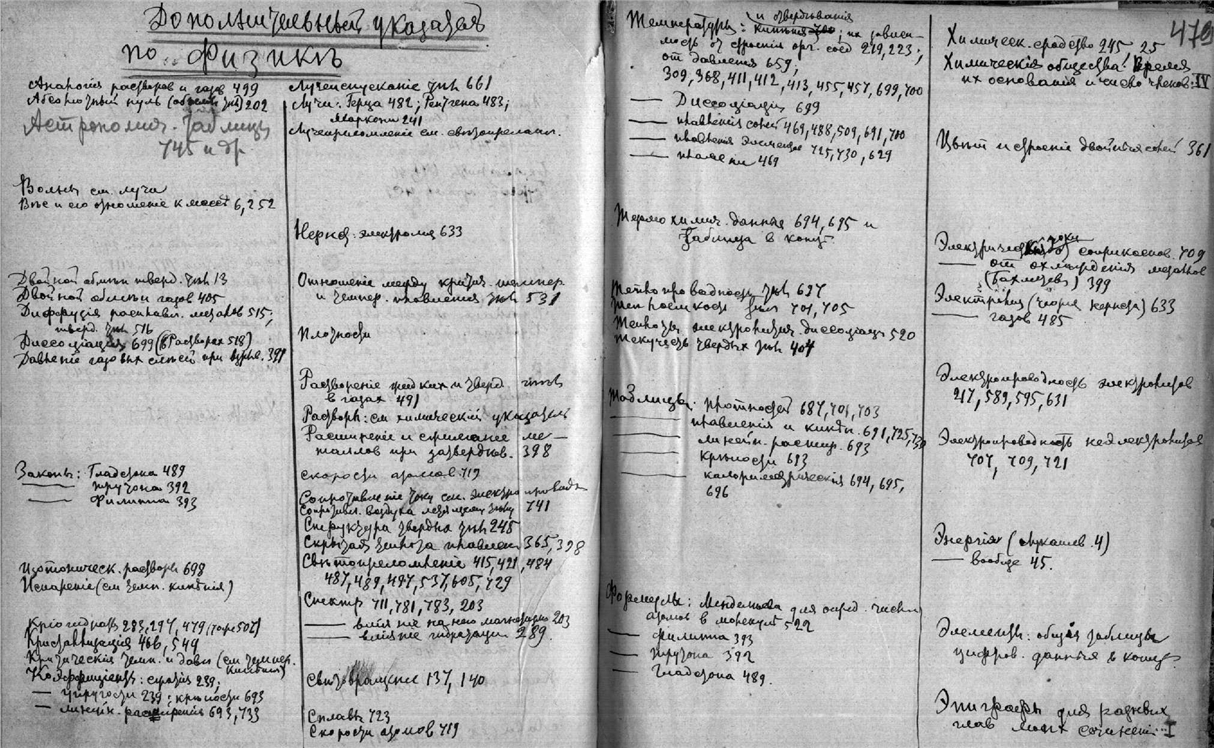 Дополнительный указатель
по Физикѣ
Аналогія растворов и газов 499
Абсолютный нуль 202
Астрономич. таблицы
745 и др
Волны см. лучи
Вѣс и его отношение к массѣ 6, 252
Двойной обмѣн тверд. тѣл 13
Двойной обмѣн газов 405
Диффузія расплавл. металлов 515;
тверд. тѣл 516
Диссоціація 699 (в растворах 518)
Давленіе газовых смѣсей при взрыв. 391
Законы: Гладстона 489
—— Трузона 392
—— Филиппа 393
Изотоническ. растворы 698
Испареніе (см темп. кипѣнія)
Кріогидраты 283, 297, 479 (тоже 502)
Кристаллизація 466, 549
Критическія темп. и давл (см темпер.
кипѣнія)
Коэффиціент: сжатія 239;
— упругости 239; крѣпости 693
— линейн. расширенія 693, 733
Лучеиспусканіе тѣл 661
Лучи: Герца 482; Рентгена 483;
Маркони 241
Лучепреломленіе см. свѣтопреломл.
Нернст. электролиз 633
Отношеніе между критич. темпер
и темпер. плавленія тѣл 531
Плотности
Раствореніе жидких и тверд. тѣл
в газах 491
Растворы: см химическій указатель
Расширеніе и сжиманіе ме-
таллов при затвердѣв. 398
Скорости атомов 719
Сопротивленіе току см. электропроводн
Сопротивл. воздуха летящему тѣлу 741
Структура тверды тѣл 245
Скрытая теплота плавлен 365, 398
Свѣтопреломленіе 415, 421, 484
487, 489, 497, 537, 605, 729
Спектр 711, 781, 783, 203
—— вліяніе на него магнетизма 203
—— вліяніе гидратаціи 289
Свѣтовращеніе 137, 140
Сплавы 723
Скорости атомов 719
479
Температуры: кипѣнія и отвердѣванія; их зависи-
мость от строения орг. соед 219, 223;
от давления 659;
309, 368, 411, 412, 413, 455, 457, 699, 700
—— Диссоціаціи 699
—— плавленія солей 469, 488, 509, 691, 700
—— плавленія элементов 725, 730, 629
—— пламени 469
Термохимич. данныя 694, 695 и
таблица в концѣ
Теплопроводность тѣл 697
Теплоемкость тѣл 701, 705
Теплота электролитич. диссоціаціи 520
Текучесть твердых тѣл 404
Таблицы: плотностей 687, 701, 703
—— плавленія и кипѣн. 691, 725, 730
—— линейн. расшир. 693
—— крѣпости 693
—— калориметрическія 694, 695,
696
Формулы: Менделѣева для опред. числа
атомов в молекулѣ 522
—— Филиппа 393
—— Трузона 392
—— Гладстона 489.
Химическ. сродство 245, 25
Химическія общества: Время
их основанія и число членов: IV
Цвѣт и строеніе двойных солей 361
Электрическіе токи соприкоснов. 709
—— от охлажденія металлов
399
Электрика (теорія Нернста) 633
—— газов 485
Электропроводность электролитов
217, 589, 595, 631
Электропроводность неэлектролитов
707, 709, 721
Энергія 4)
—— вообще 45.
Элементы: общія таблицы
цифров. данныя в концѣ
Эпиграфы для разных
глав моих сочиненій: I